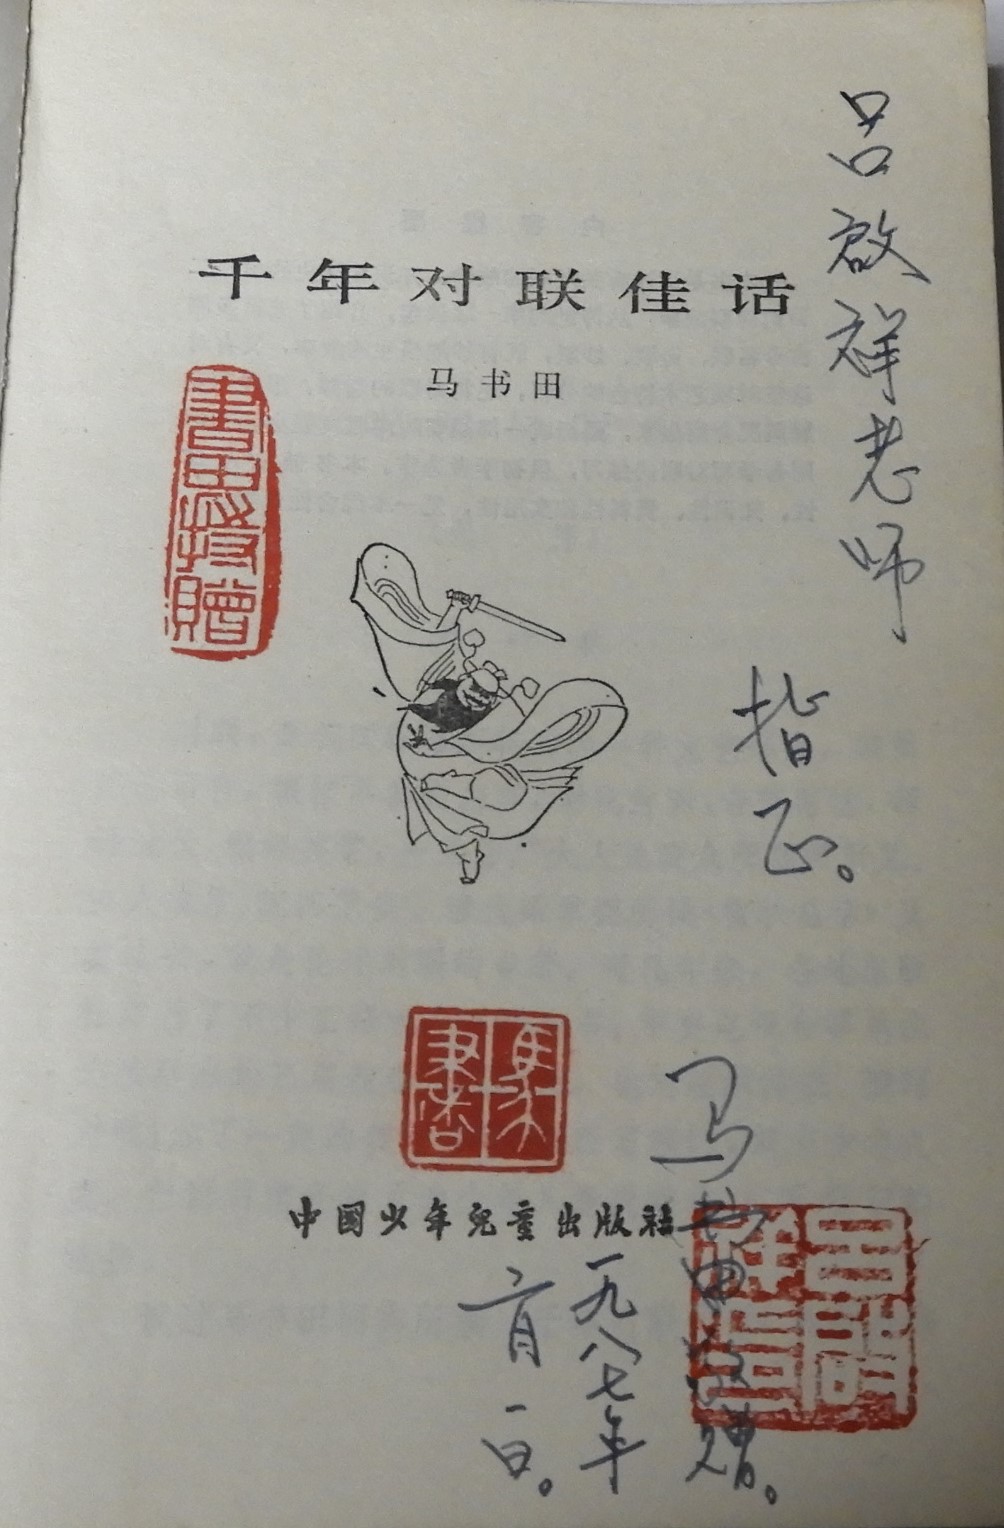 千年对联佳话
马书田
中国少年儿童出版社
吕啟祥老师
指正。
马书田敬赠。
一九八七年
六月一日。